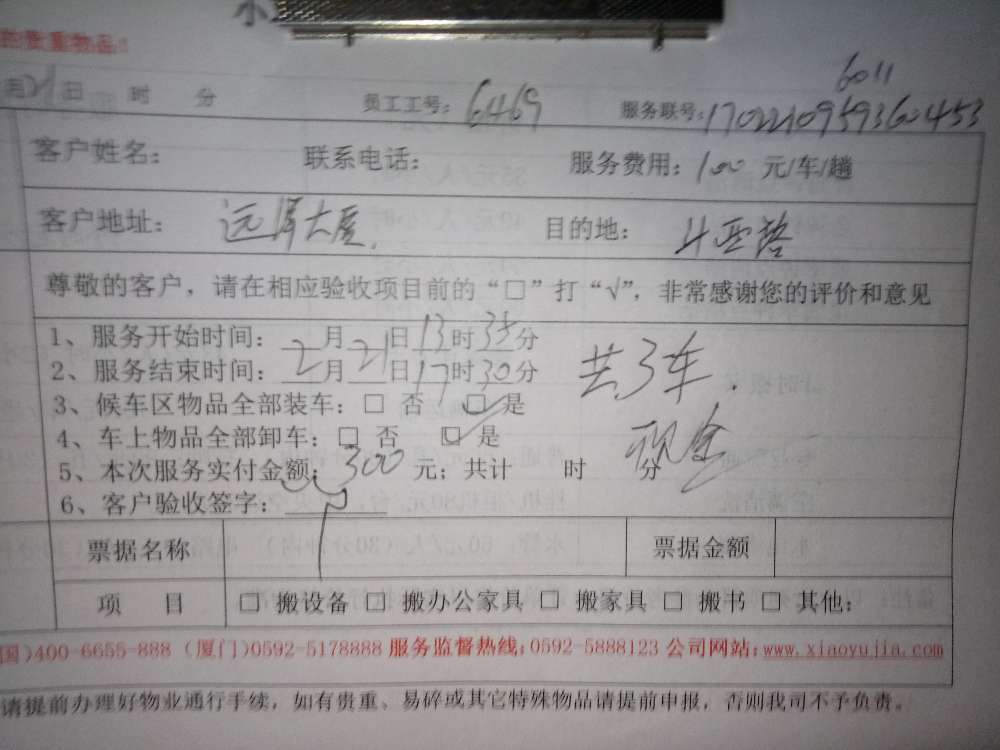 的贵重物品！
6011
月21日 时 分 员工工号：6469 服务联号：1702210959360453
客户姓名： 联系电话： 服务费用：100 元/车/趟
客户地址：远洋大厦. 目的地：斗西路
尊敬的客户，请在相应验收项目前的“□”打“√”，非常感谢您的评价和意见
1、服务开始时间： 月 日13时35分
2、服务结束时间：2月21日17时30分
共3车.
3、候车区物品全部装车：□ 否 ☑ 是
4、车上物品全部卸车：□ 否 ☑ 是
现金
5、本次服务实付金额：300元；共计 时 分
6、客户验收签字：
票据名称 票据金额
项 目 □ 搬设备 □ 搬办公家具 □ 搬家具 □ 搬书 □ 其他：
国)400-6655-888 (厦门)0592-5178888 服务监督热线：0592-5888123 公司网站：www.xiaoyujia.com
请提前办理好物业通行手续，如有贵重、易碎或其它特殊物品请提前申报，否则我司不予负责。